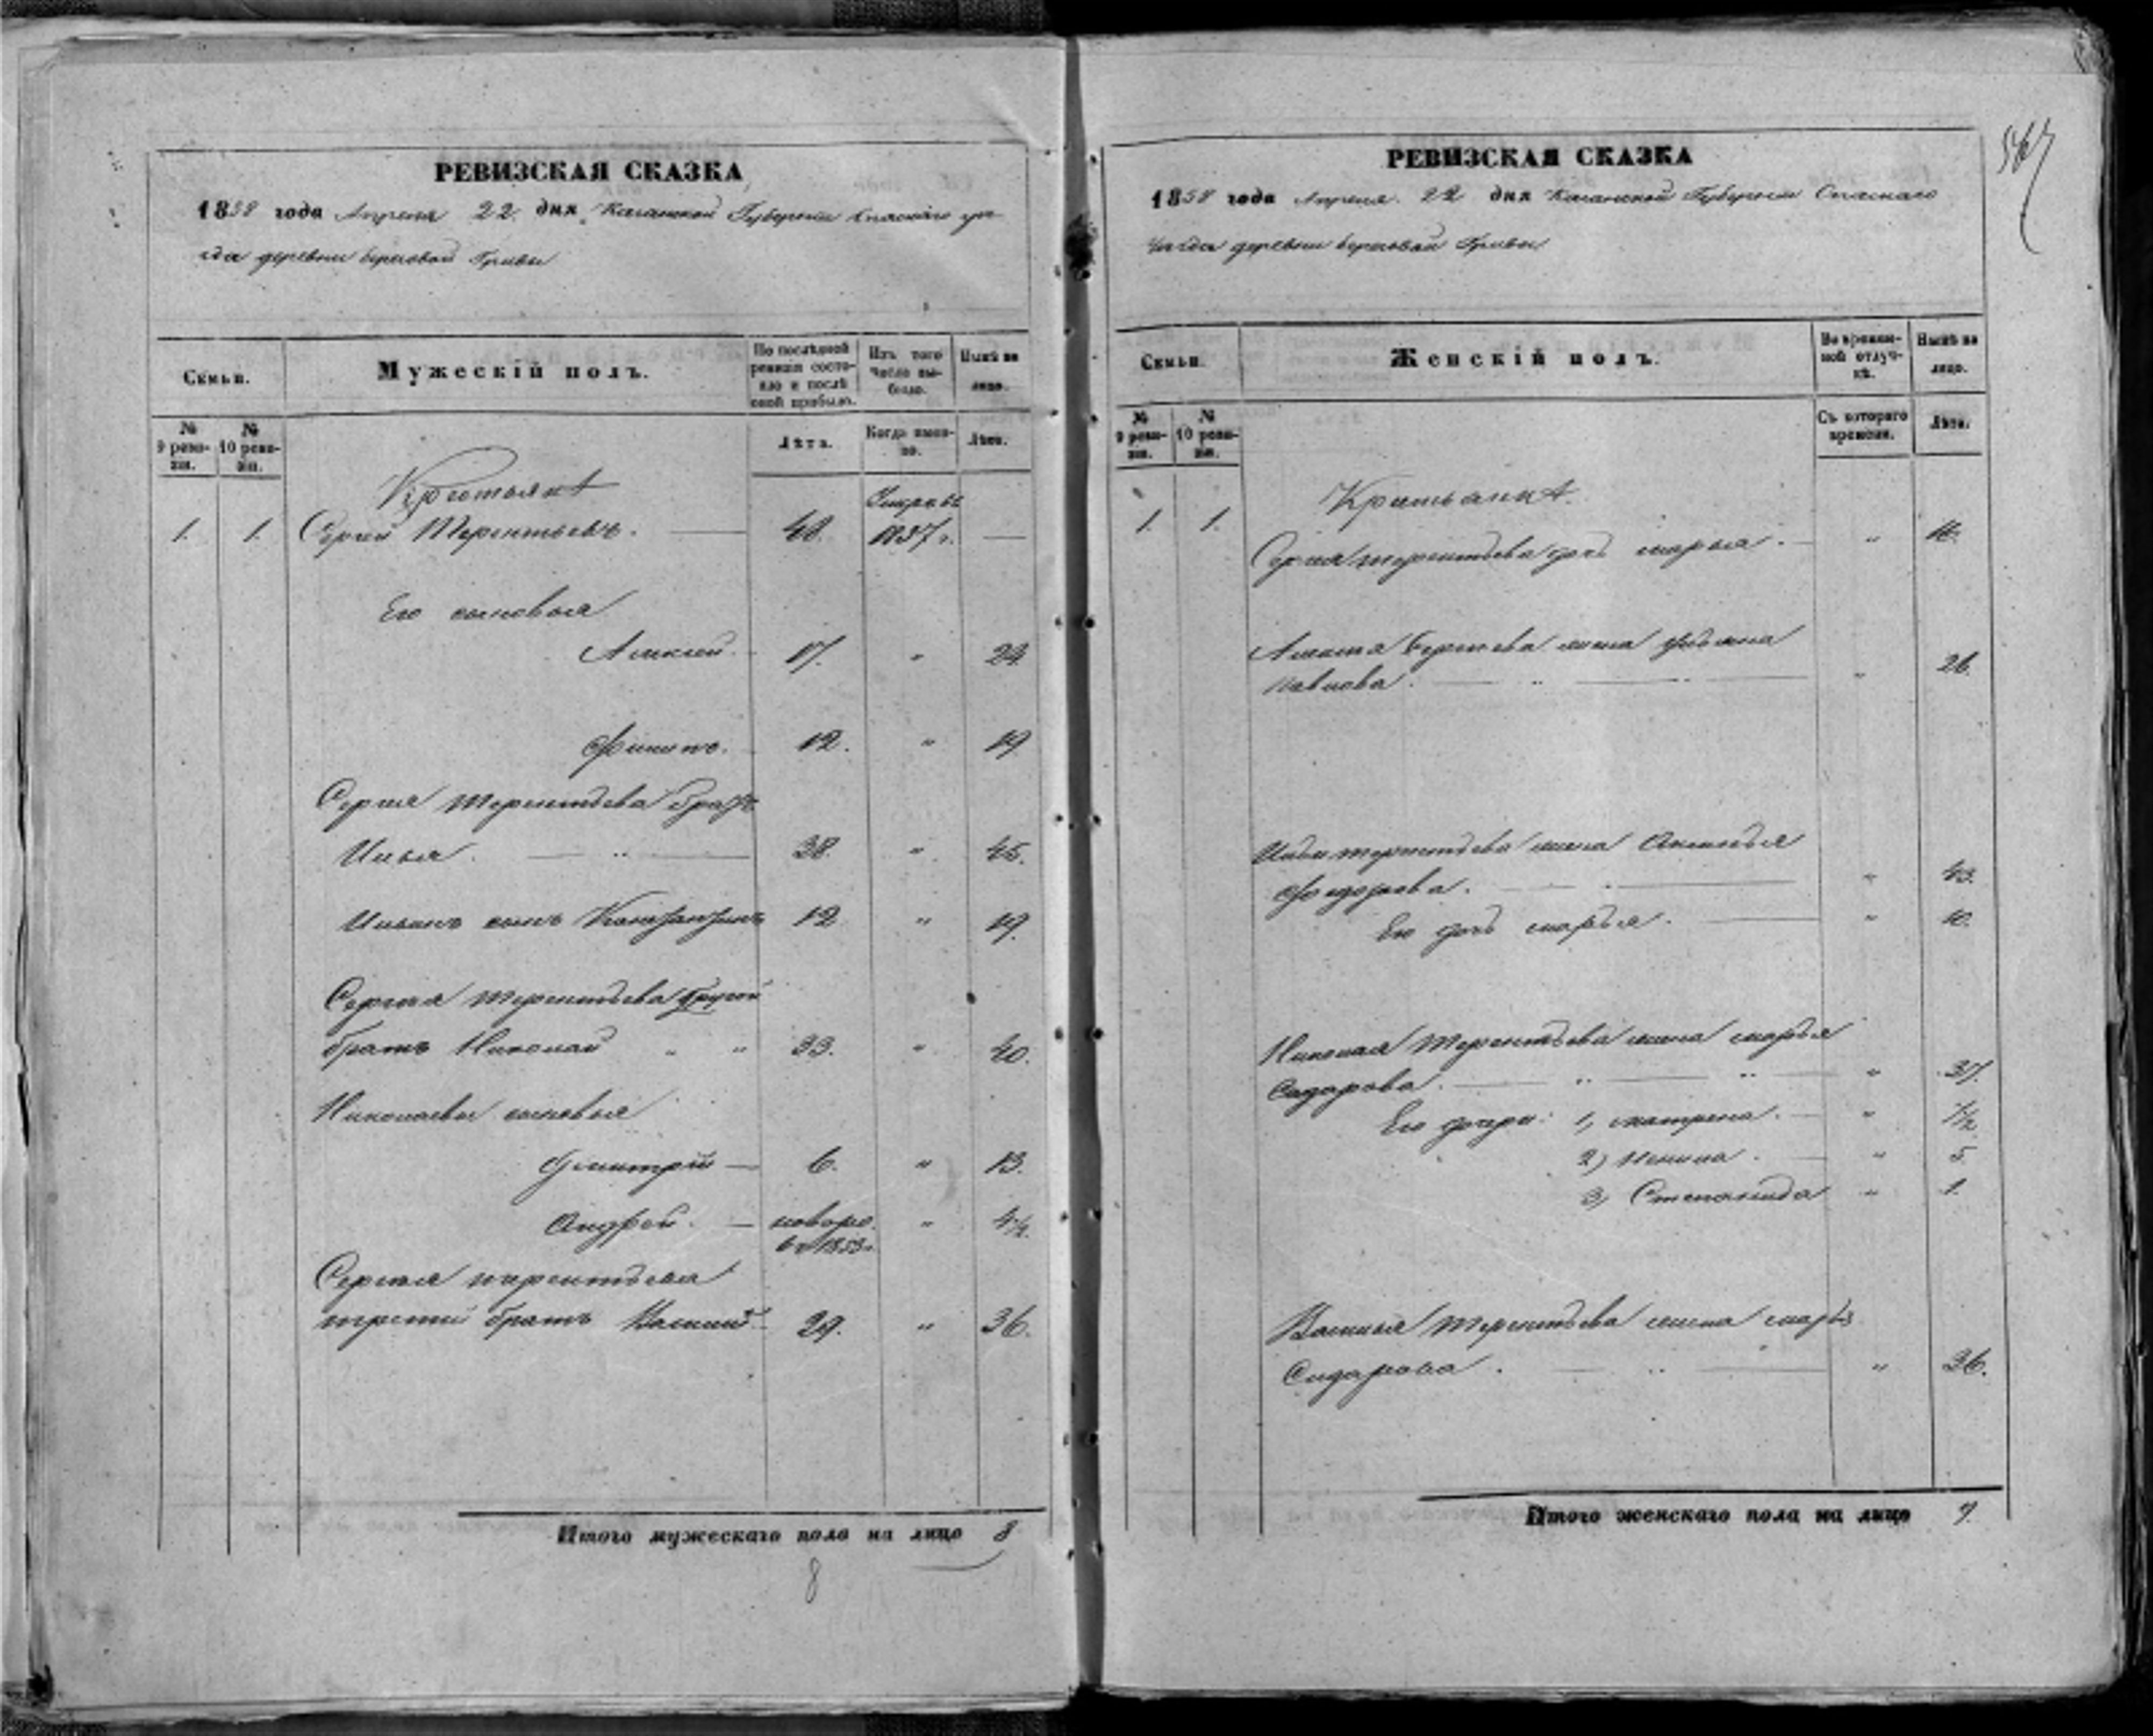 РЕВИЗСКАЯ СКАЗКА
1858 года Апреля 22 дня Казанской Губернии Спаскаго уе
зда деревни Березовой Гривы
Семьи.
Мужескій полъ.
По послѣдней ревизіи состояло и послѣ оной прибыло.
Изъ того числа выбыло.
Нынѣ на лицо.
№ 9 ревизіи.
№ 10 ревизіи.
Лѣта.
Когда именно.
Лѣта.
Крестьяне
Умре въ
1. 1. Сергей Терентьевъ. 48. 1857 г. —
Его сыновья
Алексей. 17. " 24
Филипъ. 12. " 19
Сергея Терентьева братъ
Илья. 38. " 45.
Ильинъ сынъ Константинъ 12 " 19.
Сергея Терентьева другой
братъ Николай " " 33. " 40.
Николаевы сыновья
Дмитрій — 6. " 13.
Андрей. — новоро.
въ 1853 г. " 4½.
Сергея терентьева
третий братъ Василий 29. " 36.
Итого мужескаго пола на лицо 8
8
РЕВИЗСКАЯ СКАЗКА
1858 года Апреля 22 дня Казанской Губернии Спаскаго
уезда деревни Березовой Гривы
Семьи.
Женскій полъ.
Во временной отлучкѣ.
Нынѣ на лицо.
№ 9 ревизіи.
№ 10 ревизіи.
Съ котораго времени.
Лѣта.
Крестьяне.
1. 1. Сергея терентьева дочь марья. "
Алексея Сергеева жена
Павлова. " 26.
Ильи терентьева жена
Федорова. " 43.
Его дочь марья. " 10.
Николая Терентьева жена марья
Сидарова. " 37.
Его дочери: 1, матрена. "
2) " 5.
3, Степанида " 1.
Василья Терентьева жена марья
Сидарова. " 36.
Итого женскаго пола на лицо 9.